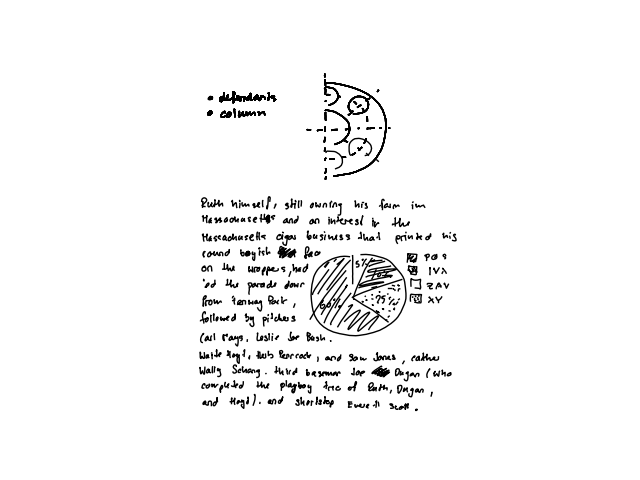 • defendants
• column
Ruth himself, still owning his farm in
Massachusetts and an interest in the
Massachusetts cigar business that printed his
round boyish face
on the wrappers, had
led the parade down
from Fenway Park,
followed by pitchers
Carl Mays, Leslie Joe Bush.
Waite Hoyt, Herb Pennock, and Sam Jones, catcher
Wally Schang. third baseman Joe Dugan (who
completed the playboy trio of Ruth, Dugan,
and Hoyt). and shortstop Everett Scott.
5%
60%
75%
IVX
ZAV
XY